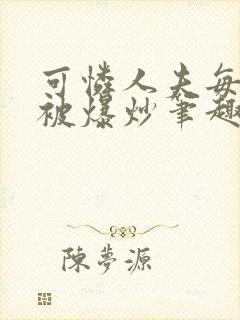 可憐人夫每
被爆炒筆趣
陳夢源